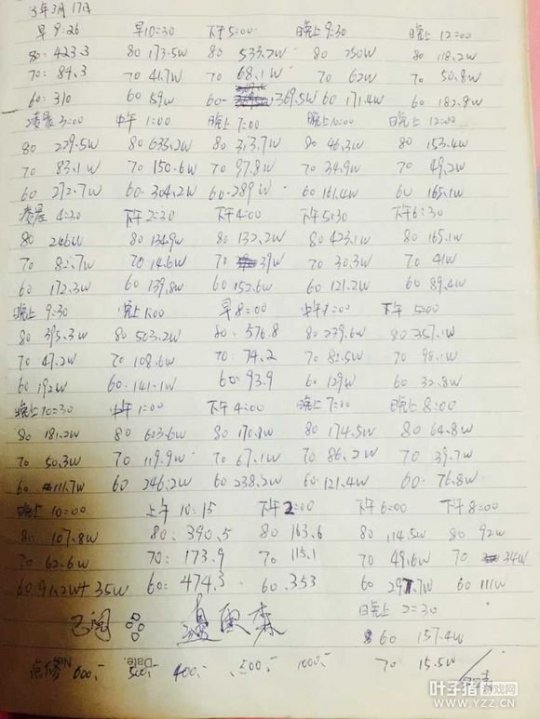 3年3月17日
早9:26 早10:30 下午5:00 晚上9:30 晚上12:00
80:423.3 80 173.5W 80 533.2W 80 250W 80 118.2W
70:84.3 70 41.7W 70 68.1W 70 62W 70 50.8W
60:310 60 59W 60 369.5W 60 171.4W 60 182.8W
凌晨3:00 中午1:00 晚上7:00 晚上10:00 晚上12:00
80 229.5W 80 635.2W 80 313.7W 80 46.3W 80 153.4W
70 83.1W 70 150.6W 70 97.8W 70 34.9W 70 49.2W
60 272.7W 60 304.2W 60 289W 60 161.4W 60 165.1W
凌晨4:20 下午2:30 下午4:00 下午5:30 下午6:30
80 246W 80 134.9W 80 132.2W 80 423.1W 80 165.1W
70 82.7W 70 14.6W 70 39W 70 30.3W 70 41W
60 172.3W 60 139.8W 60 152.6W 60 121.2W 60 89.4W
晚上9:30 晚上1:00 早8:00 中午1:00 下午5:00
80 395.3W 80 503.2W 80:576.8 80 239.6W 80 257.1W
70 47.2W 70 108.6W 70:74.2 70 82.5W 70 98.1W
60 192W 60:141.1W 60:93.9 60 129W 60 32.8W
晚上10:30 中午1:00 下午4:00 晚上7:00 晚上8:00
80 181.2W 80 603.6W 80 170.8W 80 174.5W 80 64.8W
70 50.3W 70 119.9W 70 67.1W 70 86.2W 70 39.7W
60 111.7W 60 246.2W 60 238.2W 60 121.4W 60 76.8W
晚上10:00 上午10:15 下午2:00 下午6:00 下午8:00
80 107.8W 80:390.5 80 163.6 80 114.5W 80 92W
70 62.6W 70:173.9 70 115.1 70 49.6W 70 34W
60 91.2W+35W 60:474.3 60.353 60 297.7W 60 111W
晚上2:30
60 157.4W
70 15.5W
Date.
No.
600,- 500,- 400,- 1000,-
叶子猪游戏网
WWW.YZZ.CN